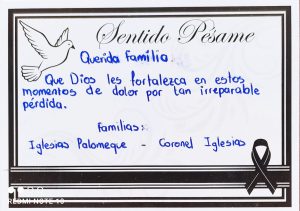 Sentido Pésame
Querida Familia:
Que Dios les fortalezca en estos
momentos de dolor por tan irreparable
pérdida.
Familias:
Iglesias Palomeque - Coronel Iglesias
REDMI NOTE 10